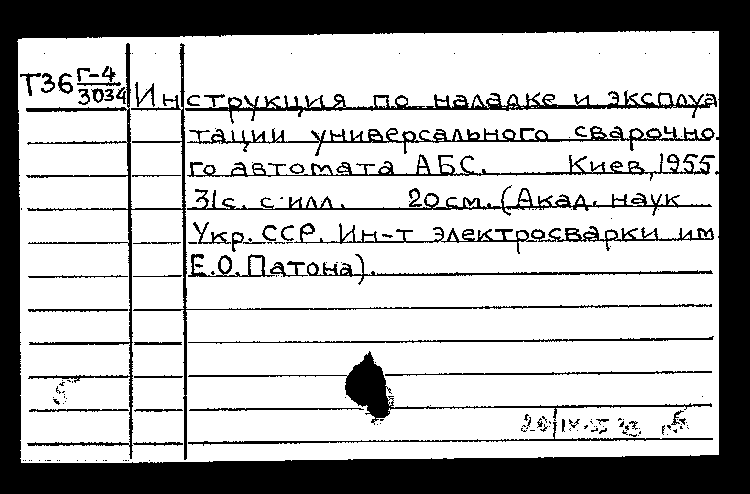 Т36 Г-4/3034 Инструкция по наладке и эксплуа
тации универсального сварочно
го автомата АБС. Киев, 1955.
31с. с илл. 20см. (Акад. наук
Укр. ССР. Ин-т электросварки им
Е.О. Патона).